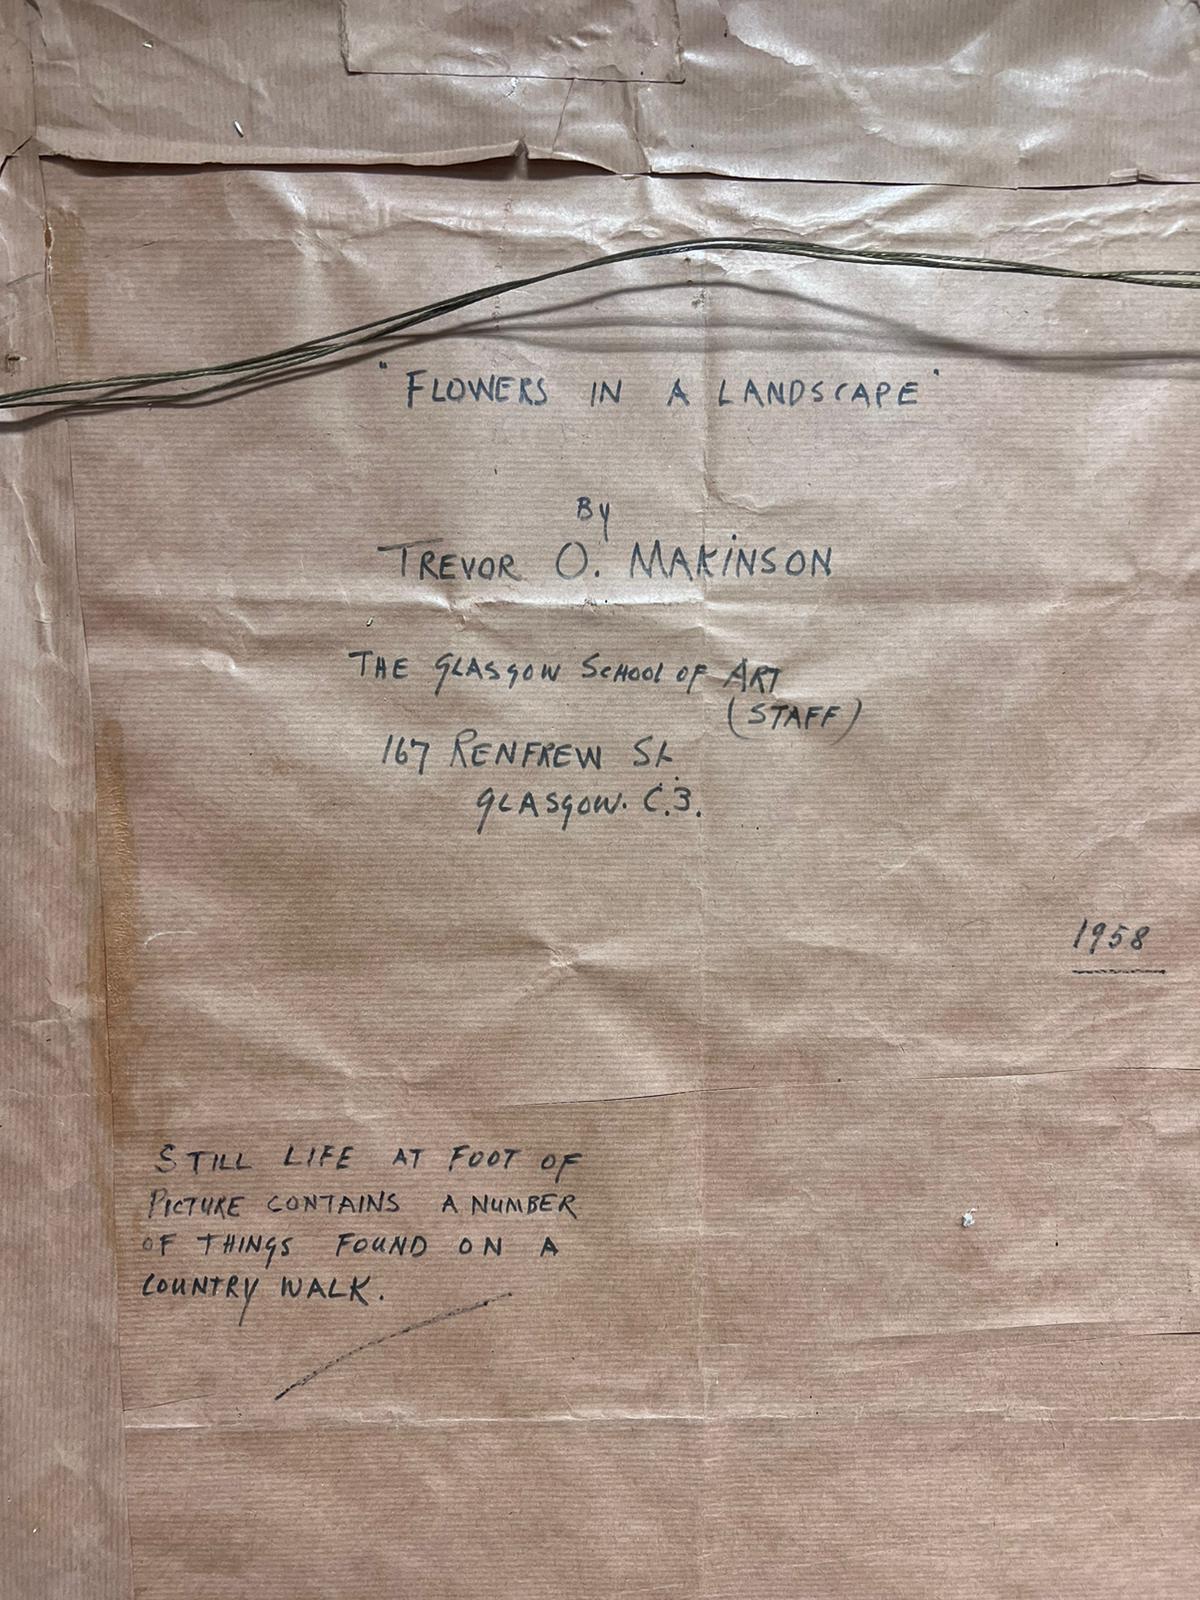 "FLOWERS IN A LANDSCAPE"
By
TREVOR O. MAKINSON
THE GLASGOW SCHOOL OF ART
(STAFF)
167 RENFREW St.
GLASGOW. C.3.
1958
STILL LIFE AT FOOT OF
PICTURE CONTAINS A NUMBER
OF THINGS FOUND ON A
COUNTRY WALK.